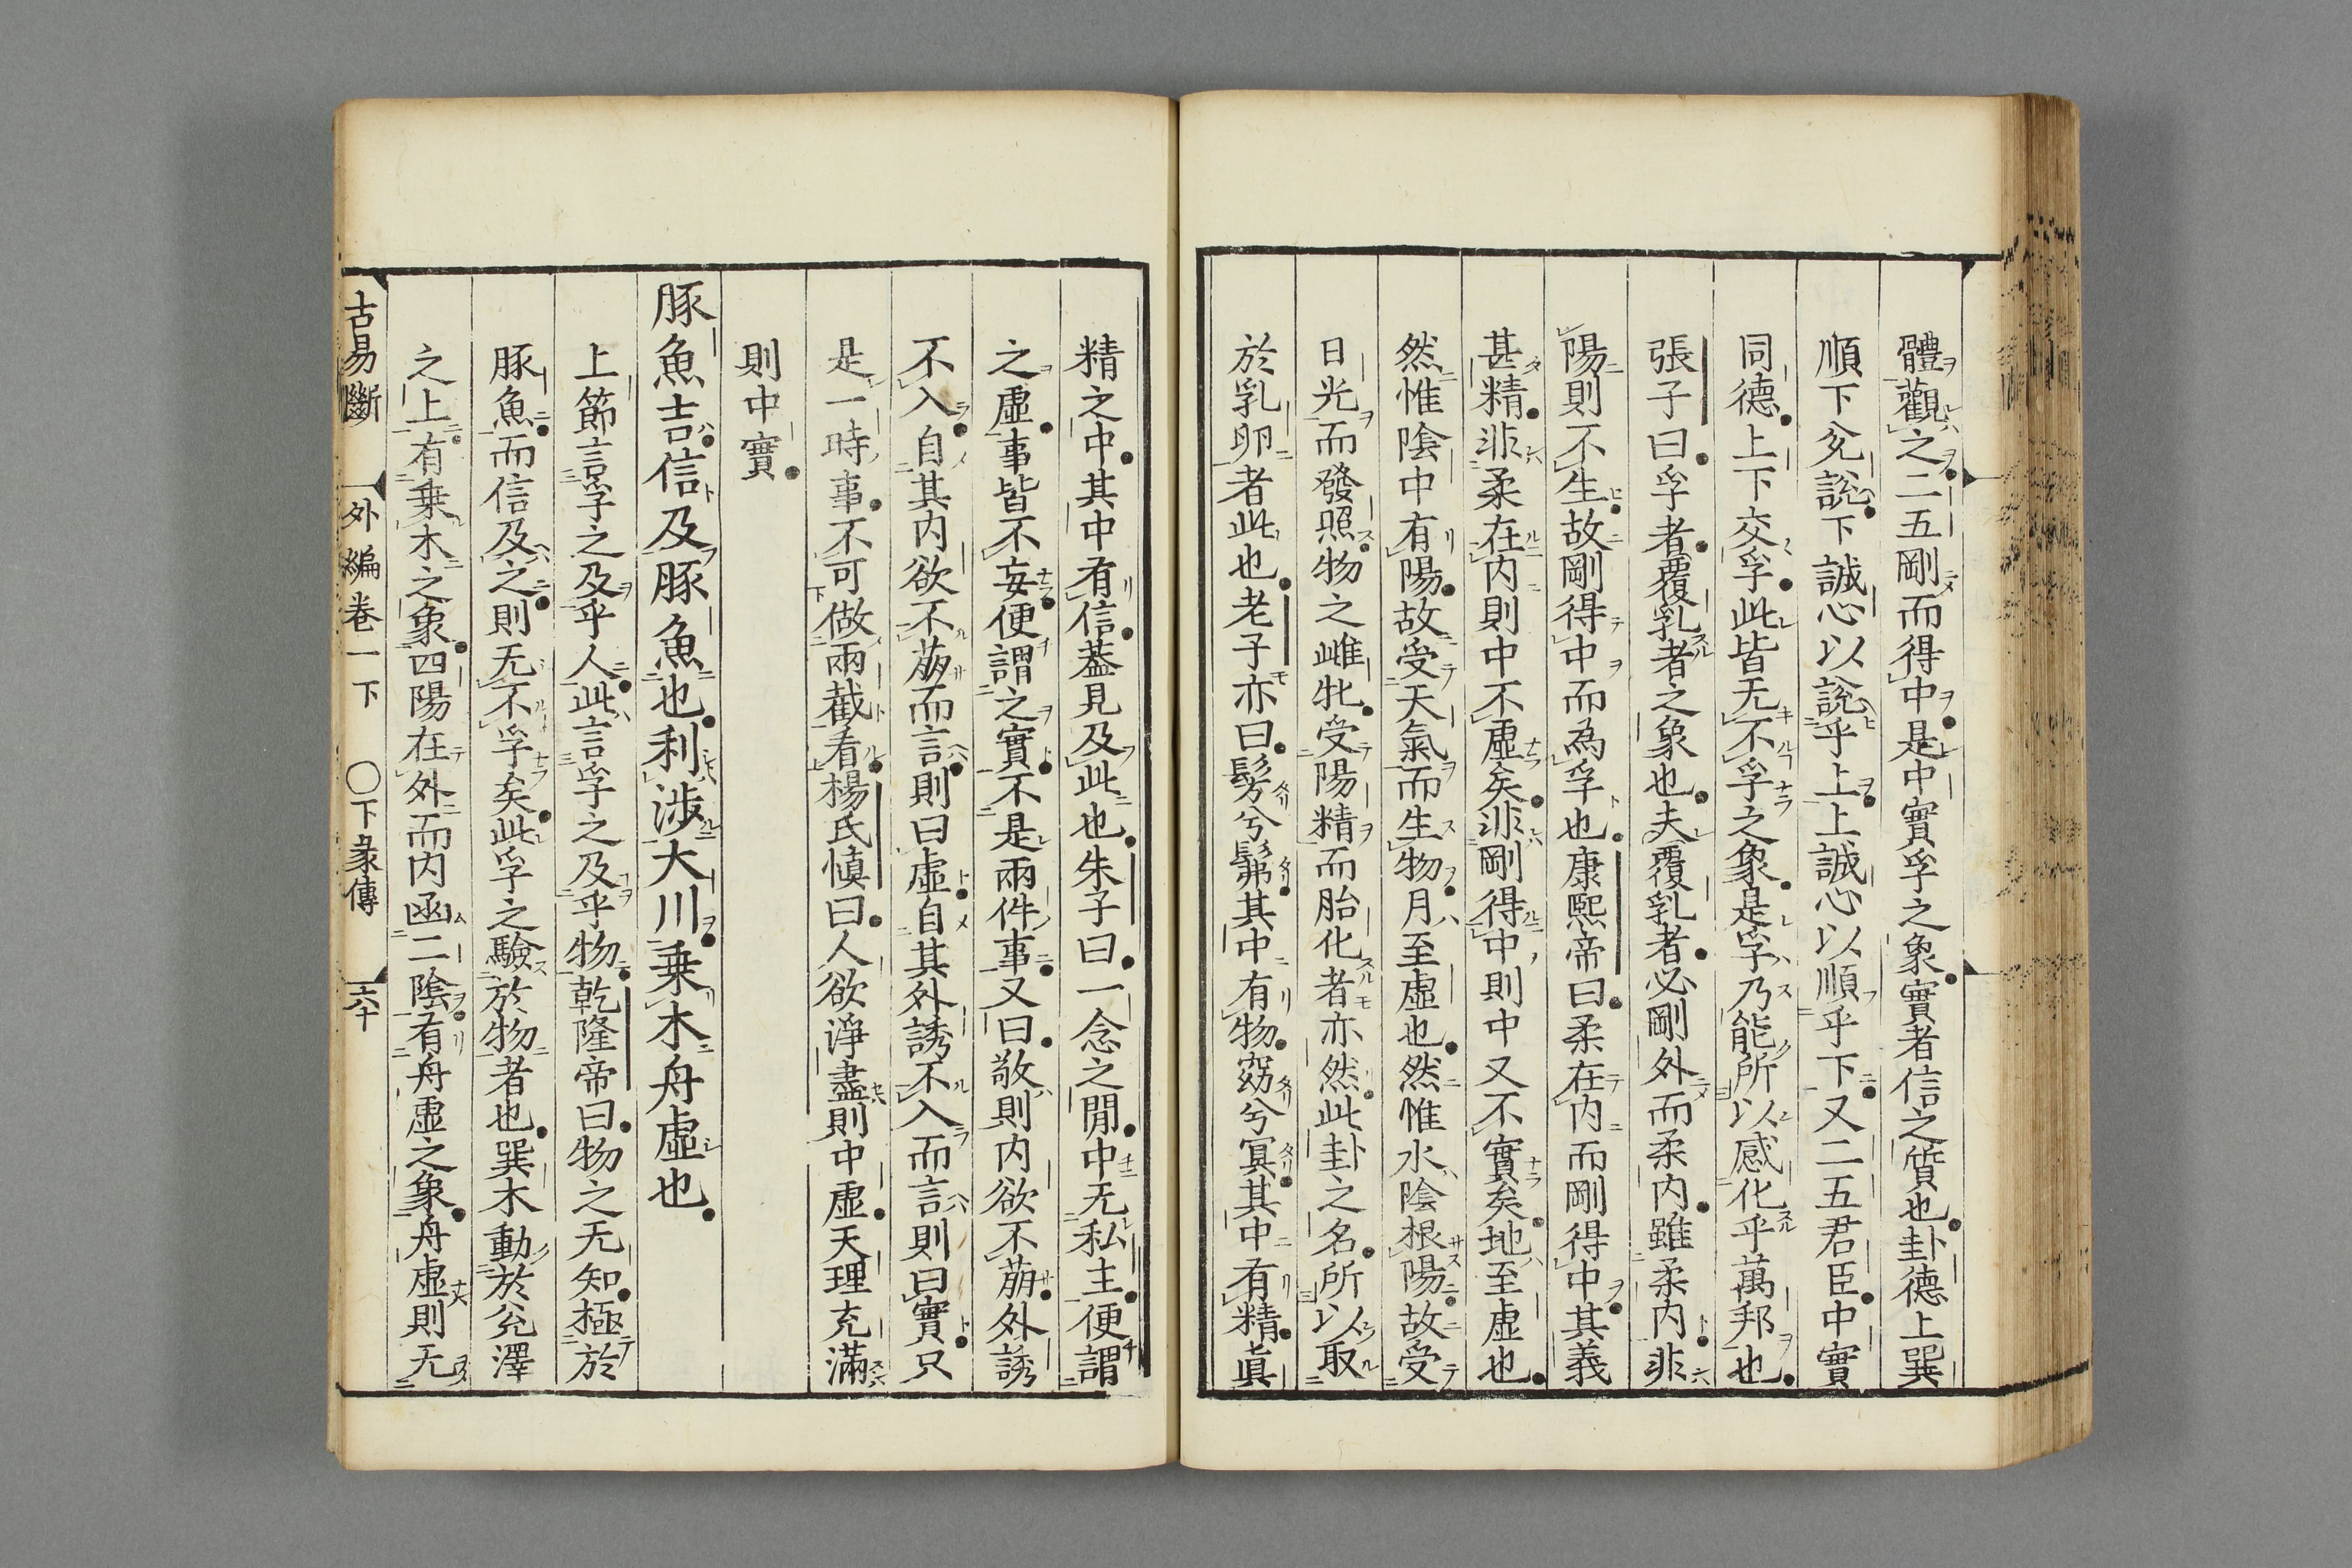 體觀之二五剛而得中是中實孚之象實者信之質也卦德上巽
順下兌說下誠心以說乎上上誠心以順乎下又二五君臣中實
同德上下交孚此皆无不孚之象是孚乃能所以感化乎萬邦也
張子曰孚者覆乳者之象也夫覆乳者必剛外而柔内雖柔内非
陽則不生故剛得中而為孚也康熙帝曰柔在内而剛得中其義
甚精非柔在内則中不虛矣非剛得中則中又不實矣地至虛也
然惟陰中有陽故受天氣而生物月至虛也然惟水陰根陽故受
日光而發照物之雌牝受陽精而胎化者亦然此卦之名所以取
於乳卵者此也老子亦曰髣兮髴其中有物窈兮冥其中有精眞
精之中其中有信葢見及此也朱子曰一念之閒中无私主便謂
之虛事皆不妄便謂之實不是兩件事又曰敬則内欲不萠外誘
不入自其内欲不萠而言則曰虛自其外誘不入而言則曰實只
是一時事不可做兩截看楊氏慎曰人欲淨盡則中虛天理充滿
則中實
豚魚吉信及豚魚也利涉大川乗木舟虛也
上節言孚之及乎人此言孚之及乎物乾隆帝曰物之无知極於
豚魚而信及之則无不孚矣此孚之驗於物者也巽木動於兌澤
之上有乗木之象四陽在外而内函二陰有舟虛之象舟虛則无
古易斷 外編卷一下 〇下彖傳 六十